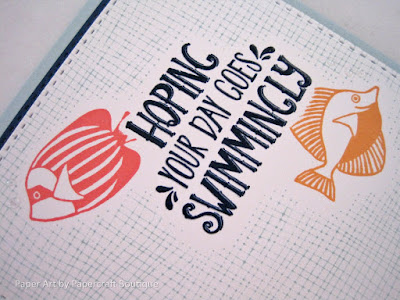 HOPING
YOUR DAY GOES
SWIMMINGLY
Paper Art by Papercraft Boutique